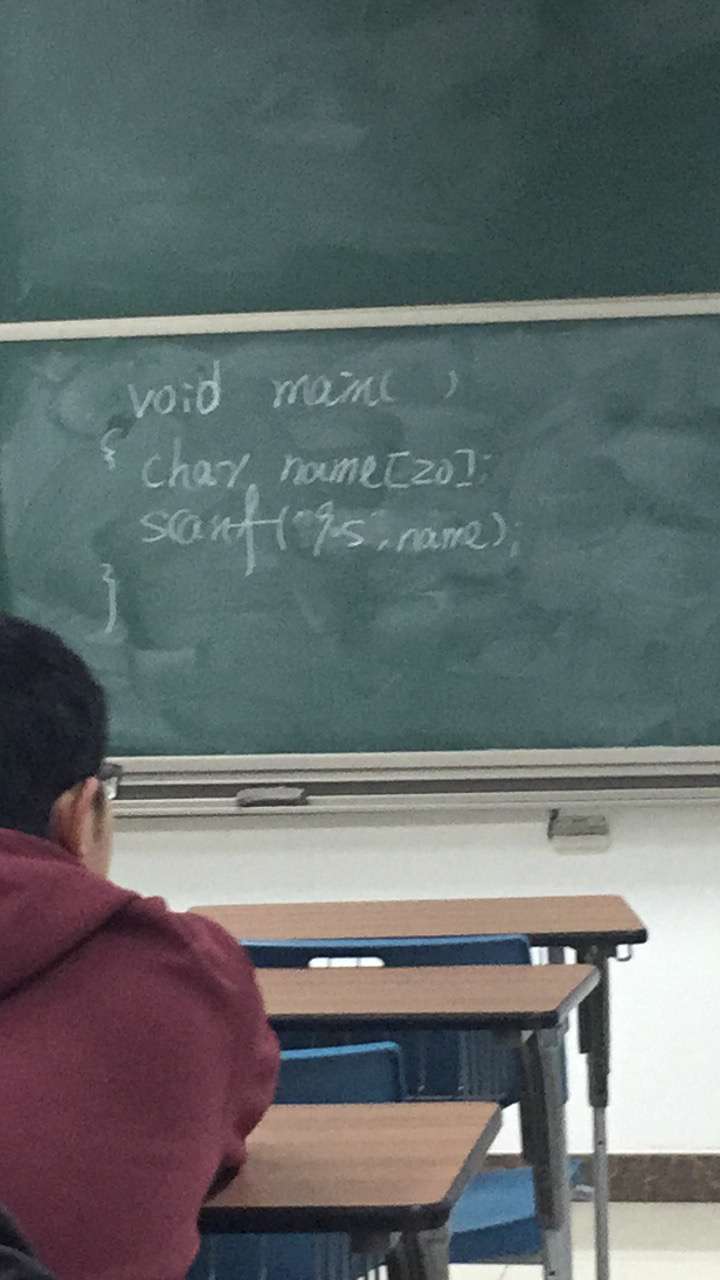 void main( )
{ char name[20];
scanf("%s",name);
}